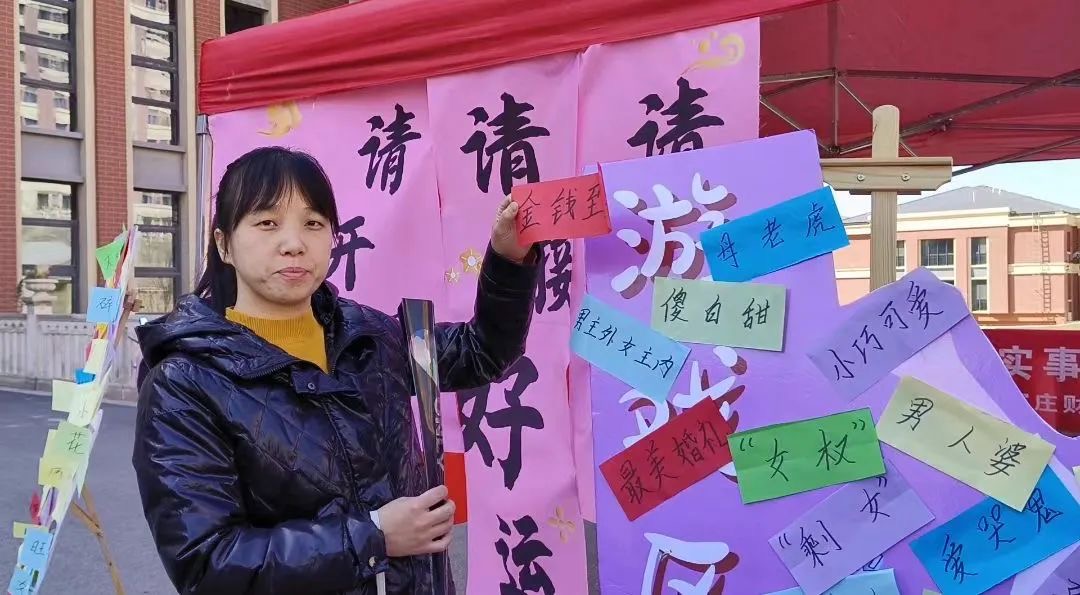 请开
请
好运
请
腰
金钱至
游戏区
母老虎
傻白甜
男主外女主内
小巧可爱
最美婚礼
“女权”
男人婆
“剩女”
爱哭鬼
实事
庄财
碎
小
花
旺